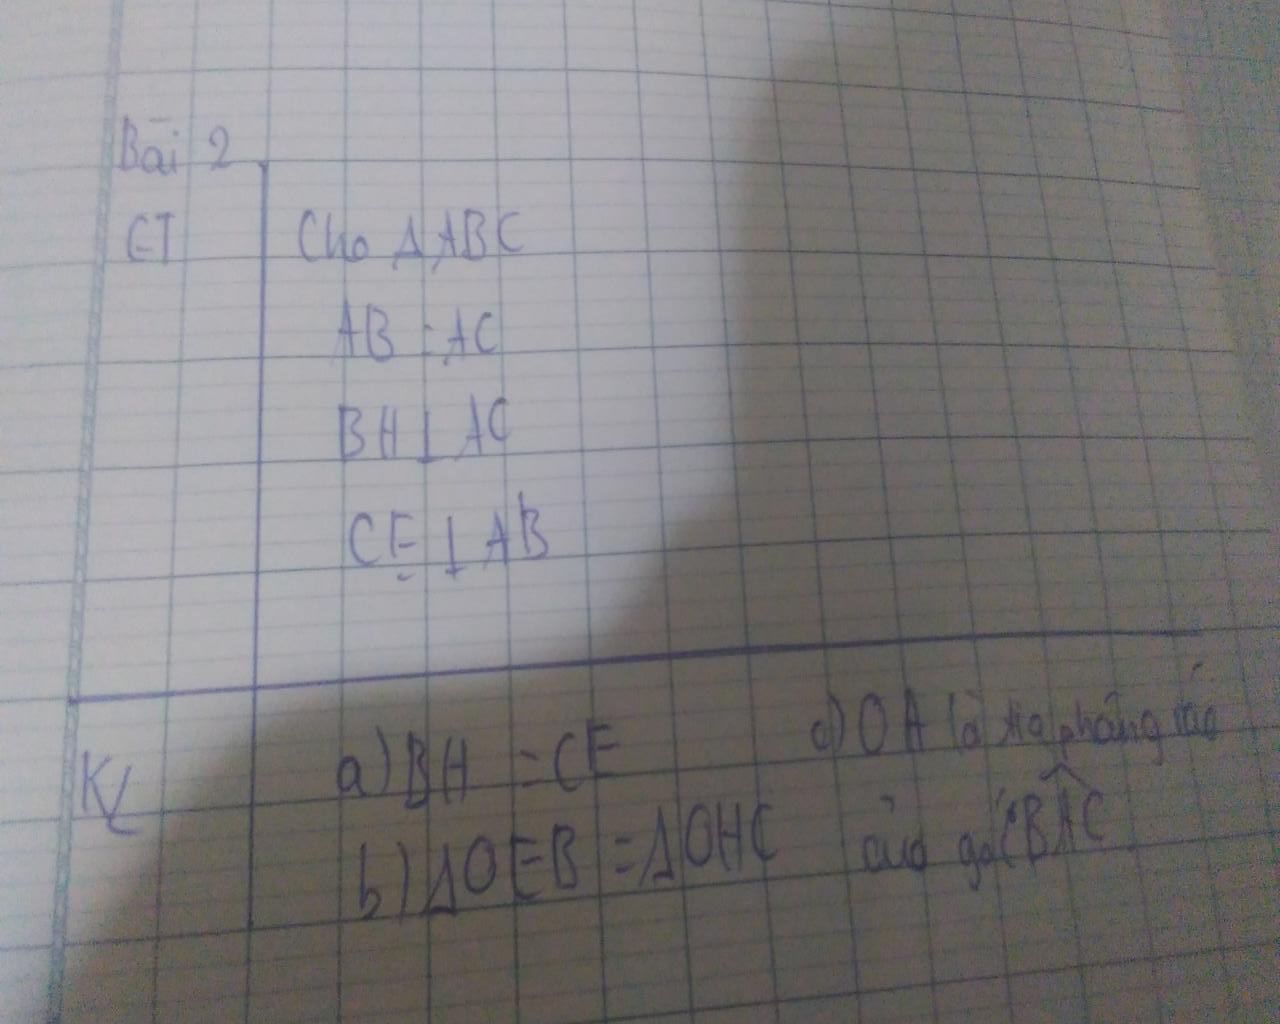 Bài 2
GT
Cho ΔABC
AB = AC
BH ⊥ AC
CE ⊥ AB
KL
a) BH = CE
b) ΔOEB = ΔOHC
c) OA là tia phâng các
của góc BAC